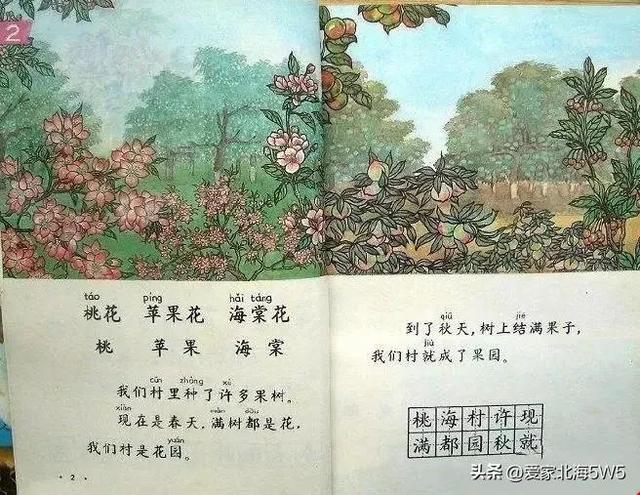 2
táo píng hǎi táng
桃花 苹果花 海棠花
桃 苹果 海棠
cūn zhòng xǔ
我们村里种了许多果树。
xiàn mǎn dōu
现在是春天,满树都是花,
yuán
我们村是花园。
·2·
qiū jiē
到了秋天,树上结满果子,
jiù
我们村就成了果园。
桃海村许现
满都园秋就
头条 @爱家北海5W5